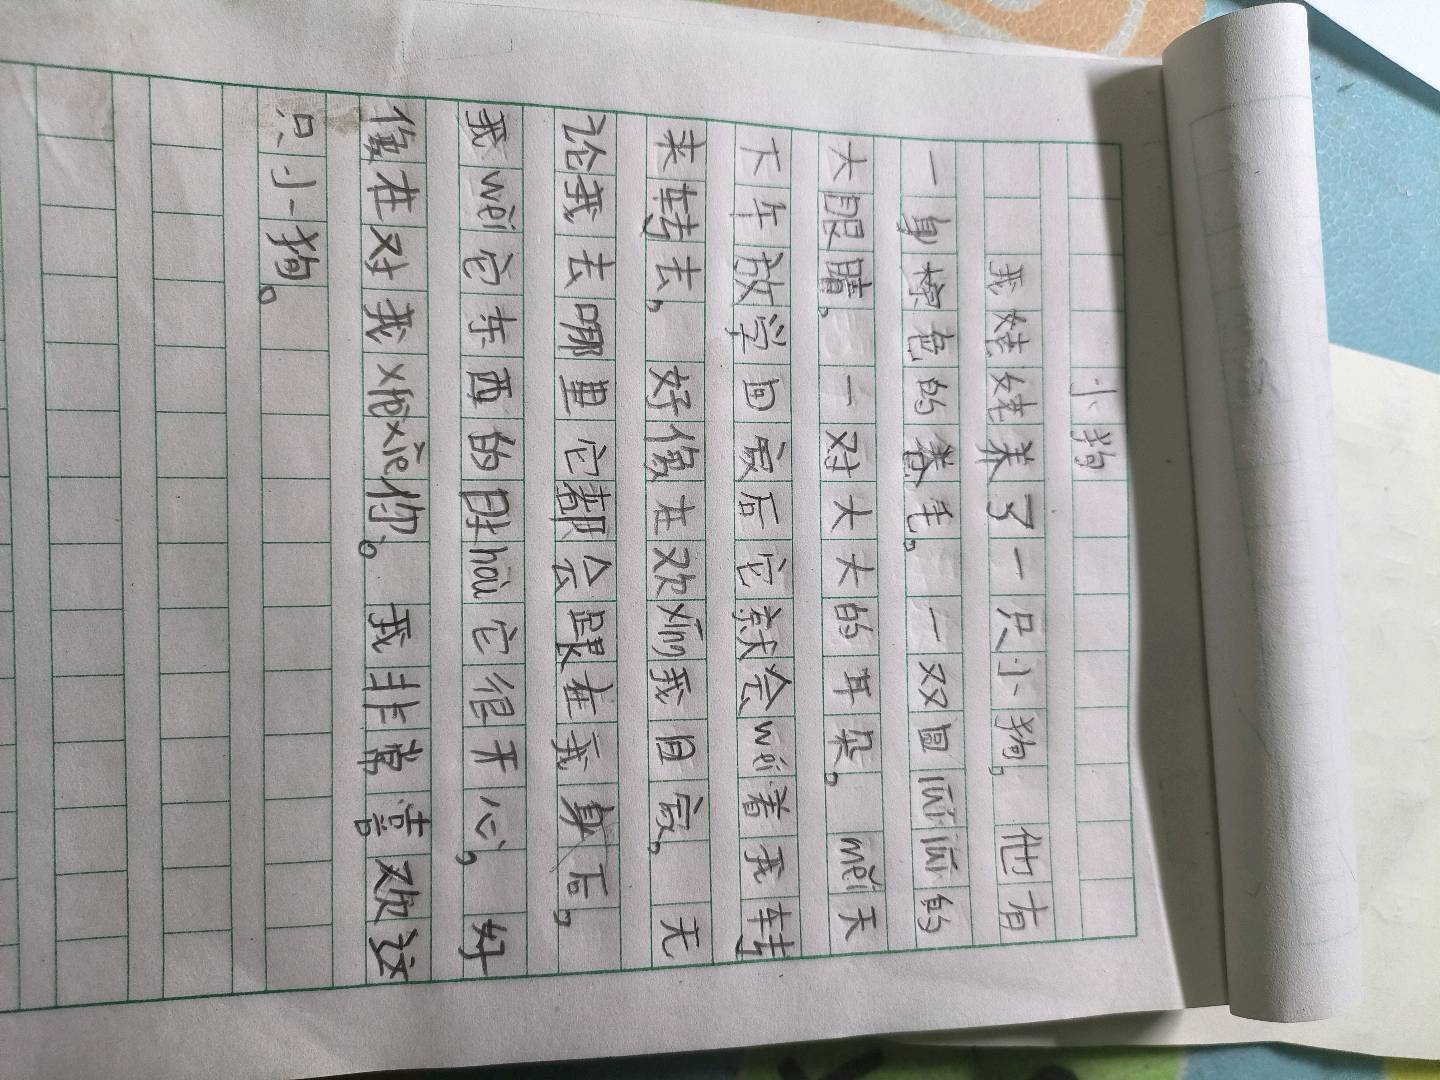 小狗
我姥姥养了一只小狗,他有
一身棕色的卷毛,一双圆liūliū的
大眼睛,一对大大的耳朵,měi天
下午放学回家后它就会wéi着我转
来转去,好像在欢yíng我回家,无
论我去哪里它都会跟在我身后,
我wèi它东西的时hòu它很开心,好
像在对我xièxiè你。我非常喜欢这
只小狗。